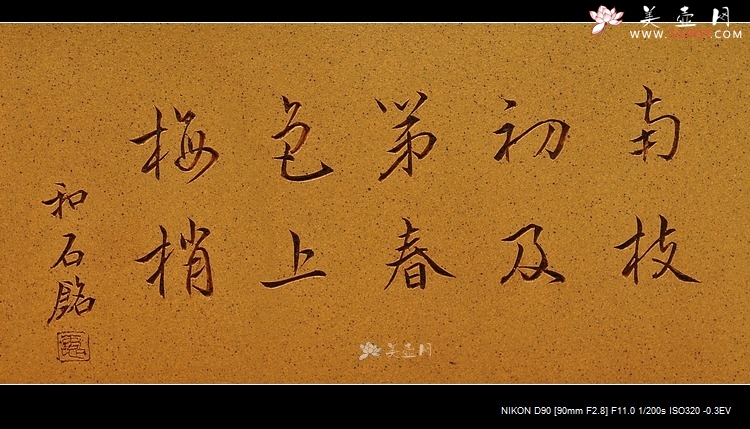 美壶网
南枝
初及
第春
色上
梅梢
和石銘
美壶网
NIKON D90 [90mm F2.8] F11.0 1/200s ISO320 -0.3EV